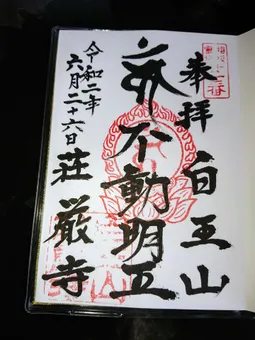 奉拝
白王山
不動明王
令和二年
六月二十六日
荘厳寺